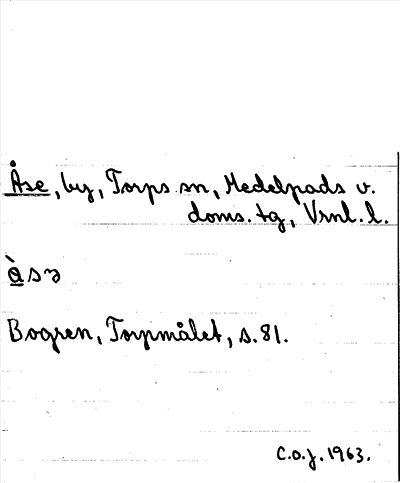 Åse, by, Torps sn, Medelpads v.
doms. tg, Vrnl. l.
àsɜ
Bogren, Torpmålet, s. 81.
C.o.j. 1963.